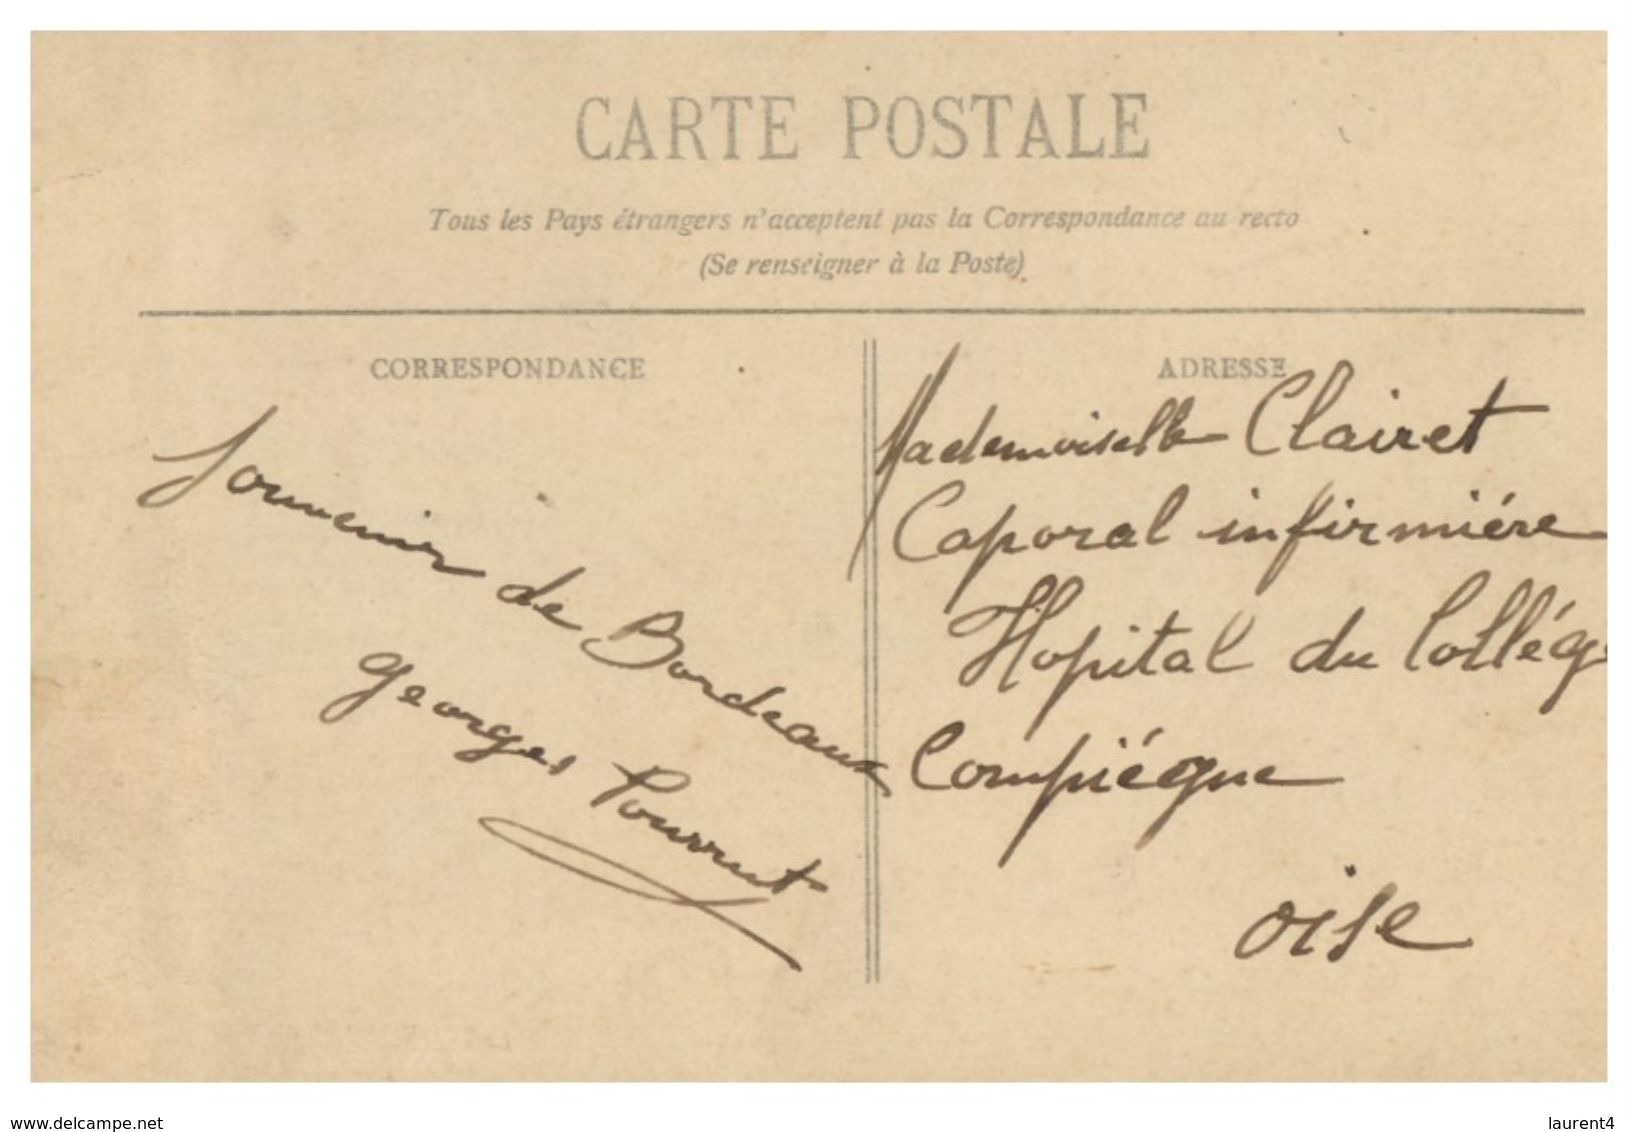 CARTE POSTALE
Tous les Pays étrangers n'acceptent pas la Correspondance au recto
(Se renseigner à la Poste)
CORRESPONDANCE
Souvenir de Bordeaux
Georges Pourrut
ADRESSE
Mademoiselle Clairet
Caporal infirmiére
Hopital du Collége
Compiégne
oise
www.delcampe.net
laurent4